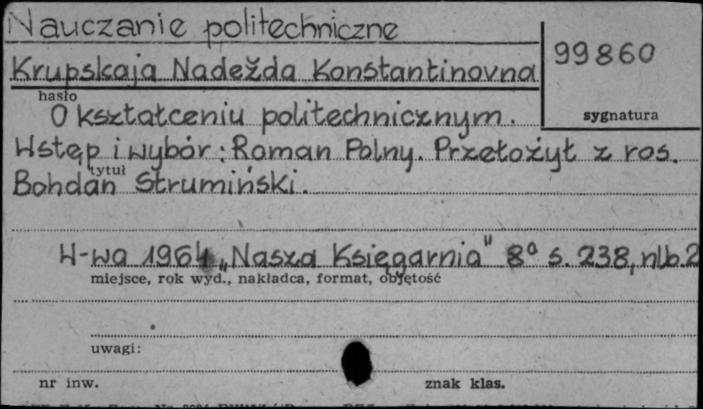 Nauczanie politechniczne
99860
Krupskaja Nadežda Konstantinovna
hasło
sygnatura
O kształceniu politechnicznym.
Wstęp i wybór: Roman Polny. Przełożył z ros.
tytuł
Bohdan Strumiński.
W-wa 1964 „Nasza Księgarnia" 8° s. 238, nlb. 2
miejsce, rok wyd., nakładca, format, objętość
uwagi:
nr inw.
znak klas.